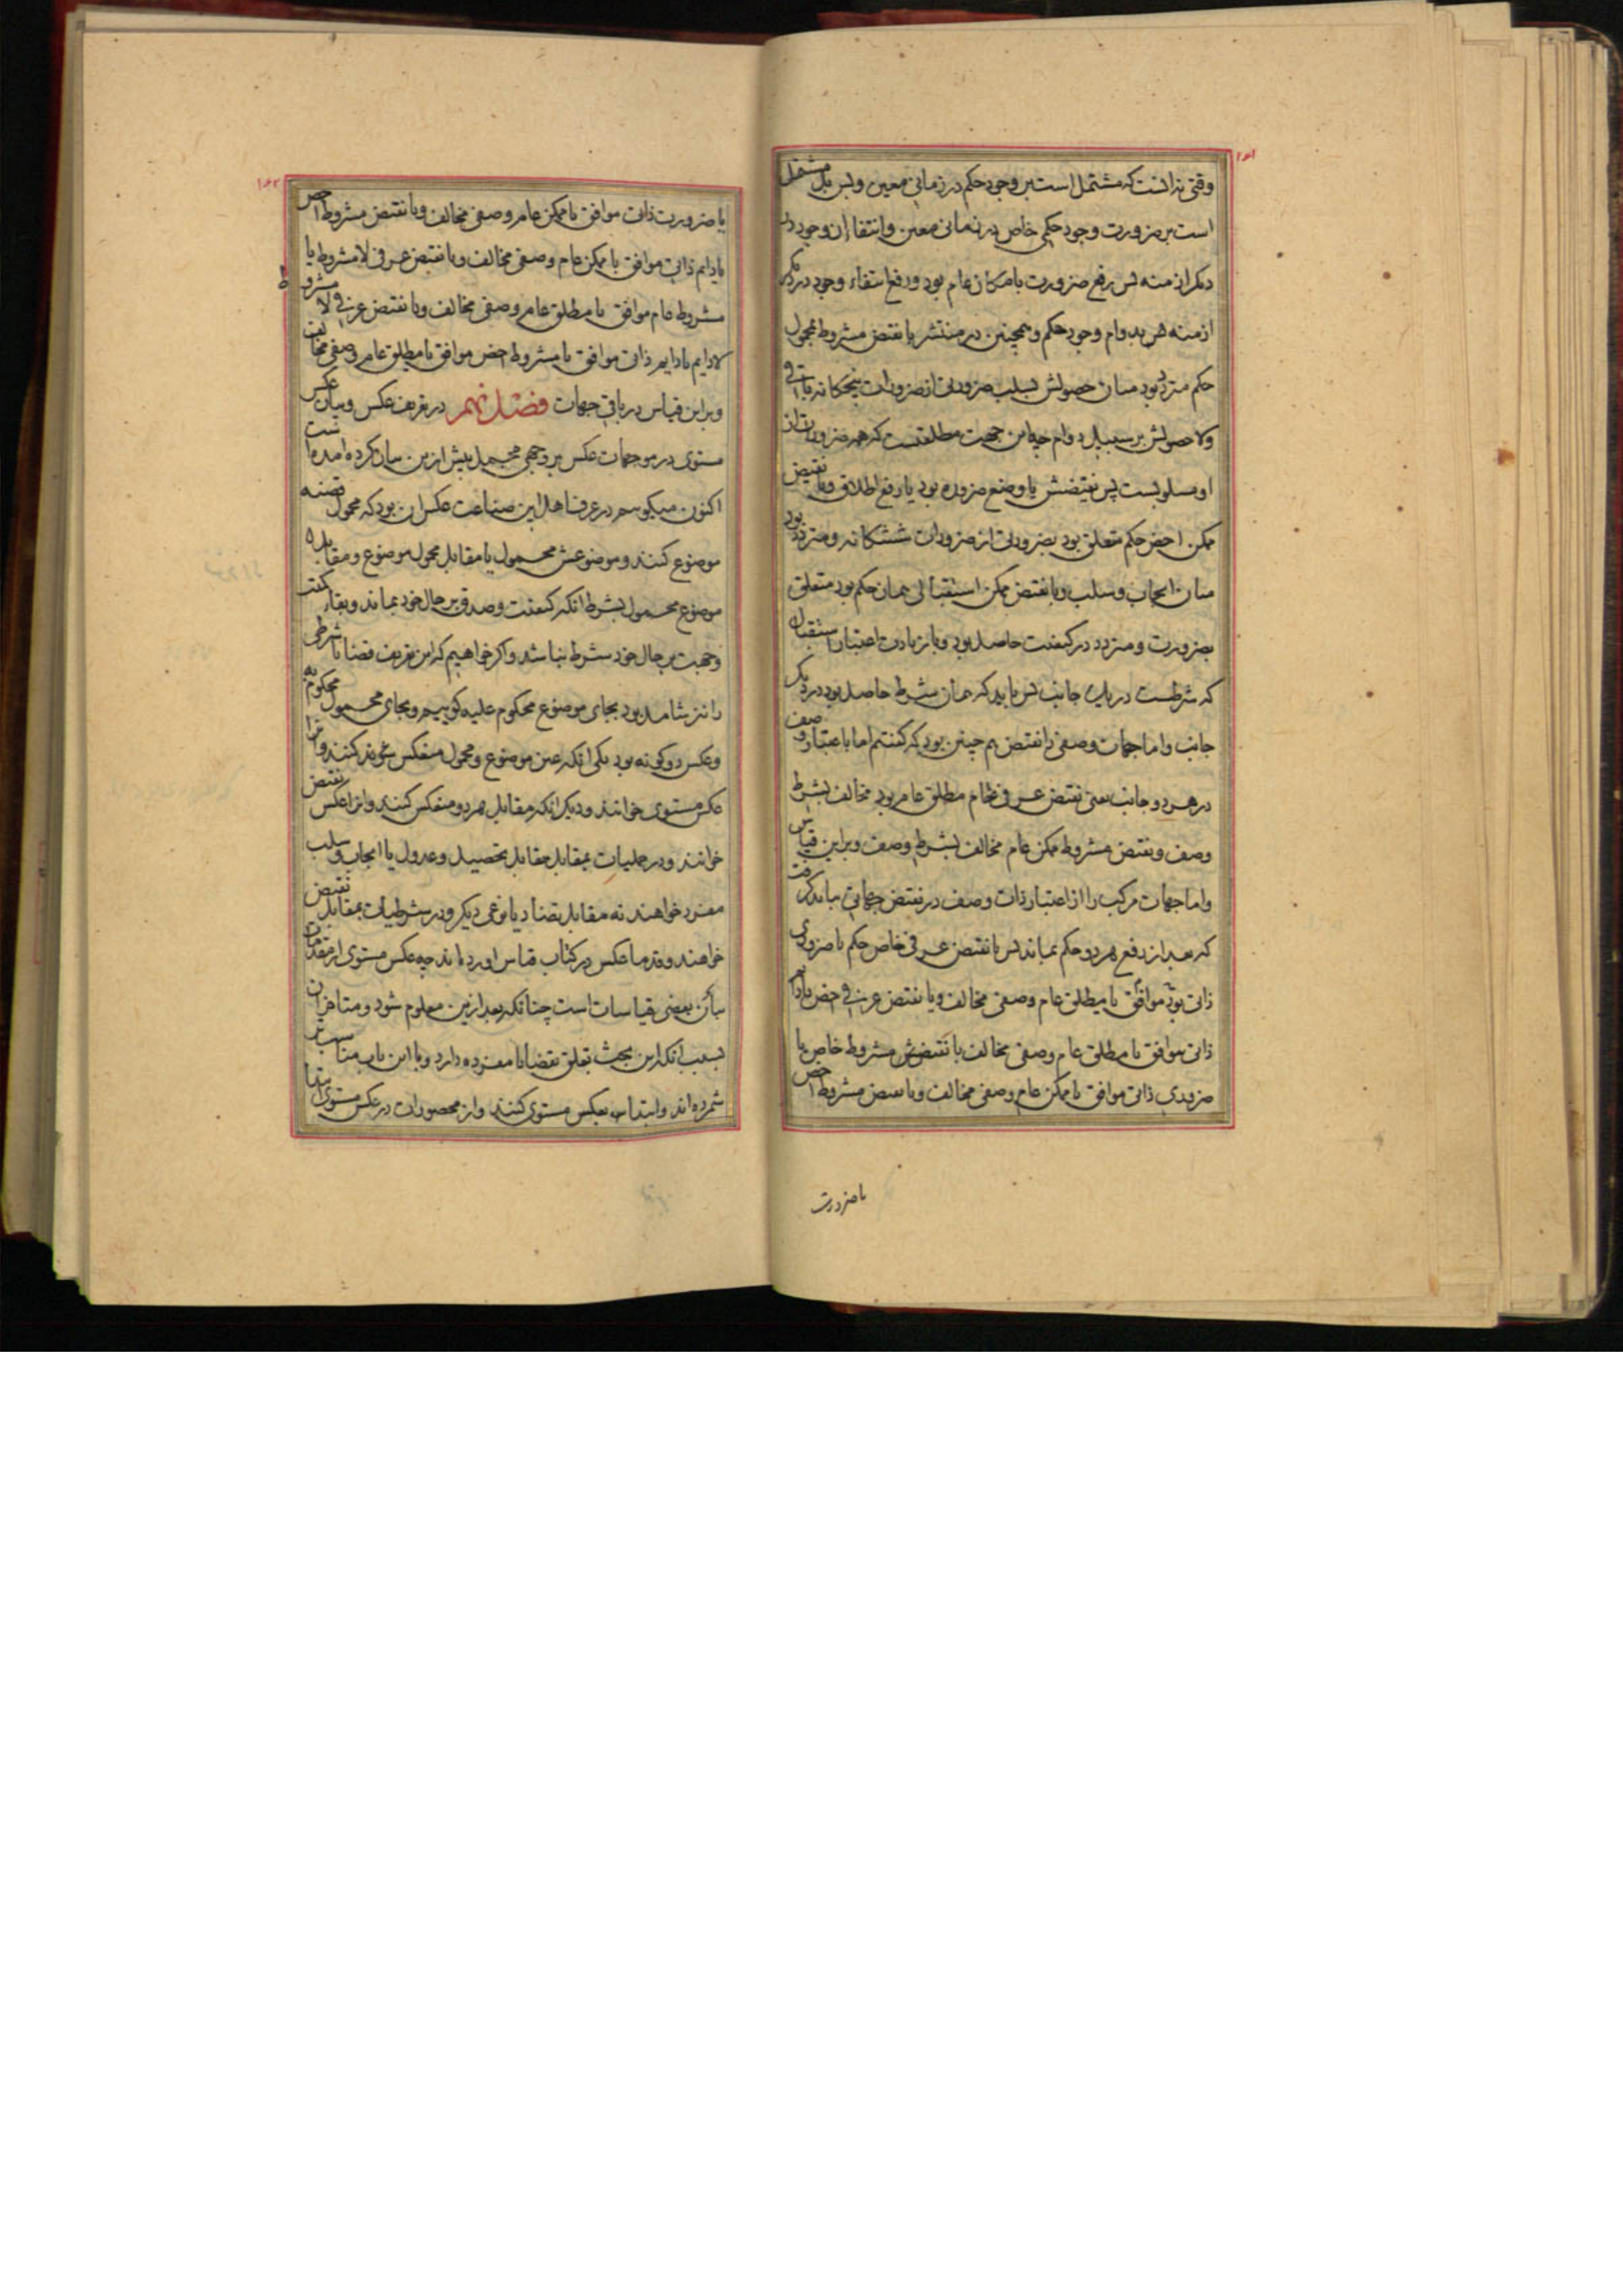 ۱۶۱
وقتی نه انست که مشتمل است بر وجود حکم در زمانی معین وبس بل مشتمل
است بر ضرورت وجود حکمی خاص در زمانی معین وانتفا ان وجود در
دیکر ازمنه بس رفع ضرورت بامکان عام بود ورفع انتفاء وجود در دیکر
ازمنه هر بدوام وجود حکم وهمچنین در منتشر با نقیض مشروط بمحمول
حکم متردد بود میان حصولش بسلب ضرورتی از ضرورات پنجکانه باقی
ولاحصولش بر سبیل دوام چه این جهت مطلقست که همه ضرورات از
او مسلوبست پس نقیضش یا وضع ضروره بود یا رفع اطلاق وبا نقیض
ممکن اخص حکم متعلق بود بضرورتی از ضرورات ششکانه ومتردد بود
میان ایجاب وسلب وبا نقیض ممکن استقبالی همان حکم بود متعلق
بضرورت ومتردد در کیفیت حاصل بود وبا زیادت اعتبار استقبال
که شرطست در یک جانب بس باید که همان شرط حاصل بود در دیکر
جانب واما جهات وصفی را نقیض هم چنین بود که کفتیم اما با اعتبار وصف
در هر دو جانب یعنی نقیض عرفی عام مطلق عام بود مخالف بشرط
وصف ونقیض مشروط ممکن عام مخالف بشرط وصف وبر این قیاس
واما جهات مرکب را از اعتبار ذات وصف در نقیض جهاتی باید کرفت
که بعد از رفع هر دو حکم بماند بس با نقیض عرفی خاص حکم یا ضروری
ذاتی بود موافق یا مطلق عام وصفی مخالف وبا نقیض عرفی اخص یا دایم
ذاتی موافق یا مطلق عام وصفی مخالف با نقیض مشروط خاص یا
ضروری ذاتی موافق یا ممکن عام وصفی مخالف وبا نقیض مشروط اخص
با ضرورت
۱۶۲
یا ضرورت ذاتی موافق یا ممکن عام وصفی مخالف وبا نقیض مشروط اخص
یا دایم ذاتی موافق یا ممکن عام وصفی مخالف وبا نقیض عرفی لامشروط یا
مشروط عام موافق یا مطلق عام وصفی مخالف وبا نقیض عرفی لا مشروط
لادایم یا دایم ذاتی موافق یا مشروط اخص موافق یا مطلق عام وصفی مخالف
وبر این قیاس در باقی جهات فصل نهم در تعریف عکس وبیان عکس
مستوی در موجهات عکس بر وجهی مجمل بیش ازین بیان کرده امده است
اکنون میکوییم در عرف اهل این صناعت عکس ان بود که محمول قضیه
موضوع کنند وموضوعش محمول یا مقابل محمول موضوع ومقابل
موضوع محمول بشرط انکه کیفیت وصدق بر حال خود بماند وبقاء کمیت
وجهت بر حال خود شرط نباشد واکر خواهیم که این تعریف قضایا شرطی
را نیز شامل بود بجای موضوع محکوم علیه کوییم وبجای محمول محکوم به
وعکس دو کونه بود یکی انکه عین موضوع ومحمول منعکس کنند وانرا
عکس مستوی خوانند ودیکر انکه مقابل هر دو منعکس کنند وانرا عکس نقیض
خوانند ودر حملیات بمقابل مقابل بتحصیل وعدول یا ایجاب وسلب
مفرد خواهند نه مقابل بتضاد یا نوعی دیکر ودر شرطیات بمقابل نقیض
خواهند وقدما عکس در کتاب قیاس اورده اند چه عکس مستوی از مقدمات
بیان بعضی قیاسات است چنانکه بعد ازین معلوم شود ومتاخران
بسبب انکه این بحث تعلق بقضایا مفرده دارد وبا این باب مناسب تر
شمرده اند وابتدا بعکس مستوی کنند واز محصورات در عکس مستوی ابتدا